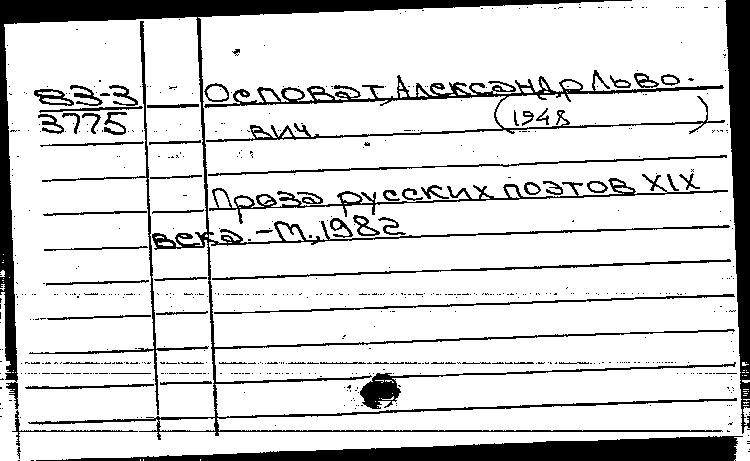 83-3 Осповат, Александр Льво-
3775 вич. (1948 )
Проза русских поэтов XIX
века. - М., 1982